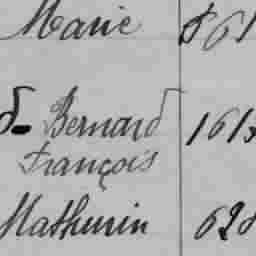 Marie 861
d- Bernard 161
François
Mathurin 628